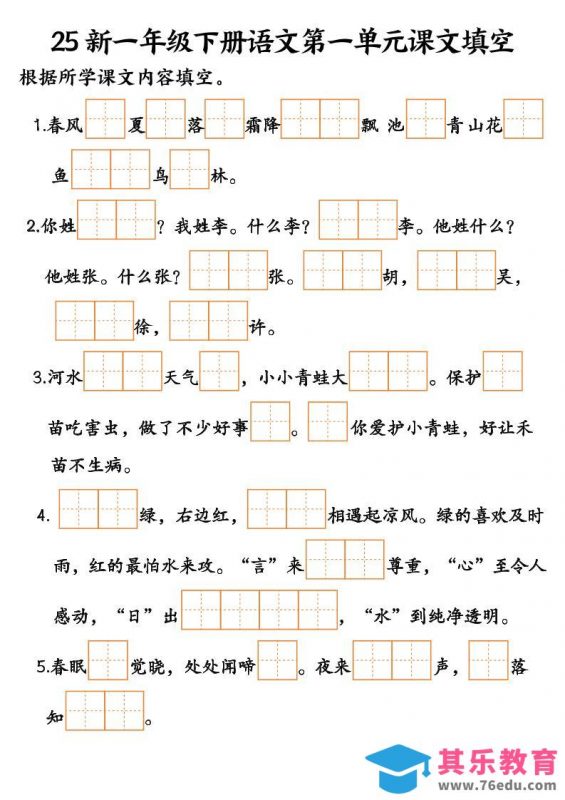 25新一年级下册语文第一单元课文填空
根据所学课文内容填空。
1.春风 夏 落 霜降 飘 池 青山花
鱼 鸟 林。
2.你姓 ？我姓李。什么李？ 李。他姓什么？
他姓张。什么张？ 张。 胡， 吴，
徐， 许。
3.河水 天气 ，小小青蛙大 。保护
苗吃害虫，做了不少好事 。 你爱护小青蛙，好让禾
苗不生病。
4. 绿，右边红， 相遇起凉风。绿的喜欢及时
雨，红的最怕水来攻。“言”来 尊重，“心”至令人
感动，“日”出 ，“水”到纯净透明。
5.春眠 觉晓，处处闻啼 。夜来 声， 落
知 。
其乐教育
www.76edu.com